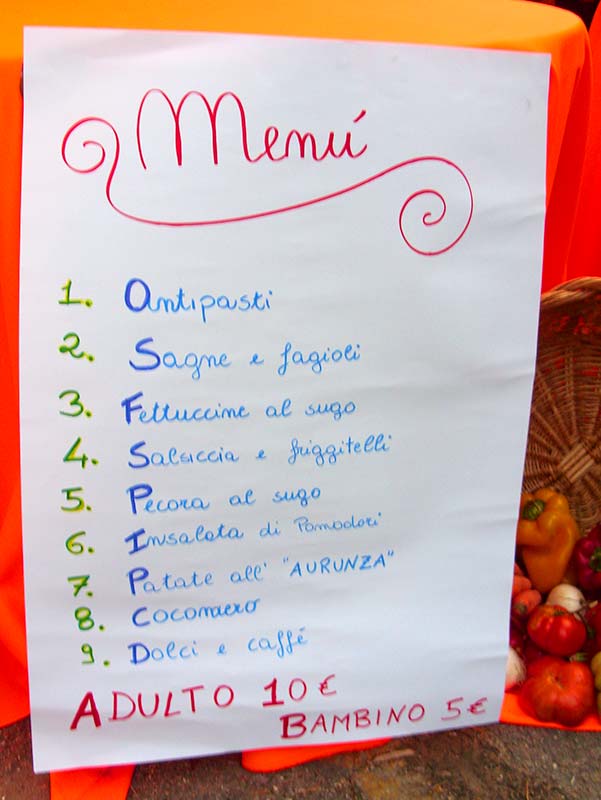 Menú
1. Antipasti
2. Sagne e fagioli
3. Fettuccine al sugo
4. Salsiccia e friggitelli
5. Pecora al sugo
6. Insalata di Pomodori
7. Patate all' "AURUNZA"
8. Cocomero
9. Dolci e caffé
ADULTO 10 €
BAMBINO 5 €